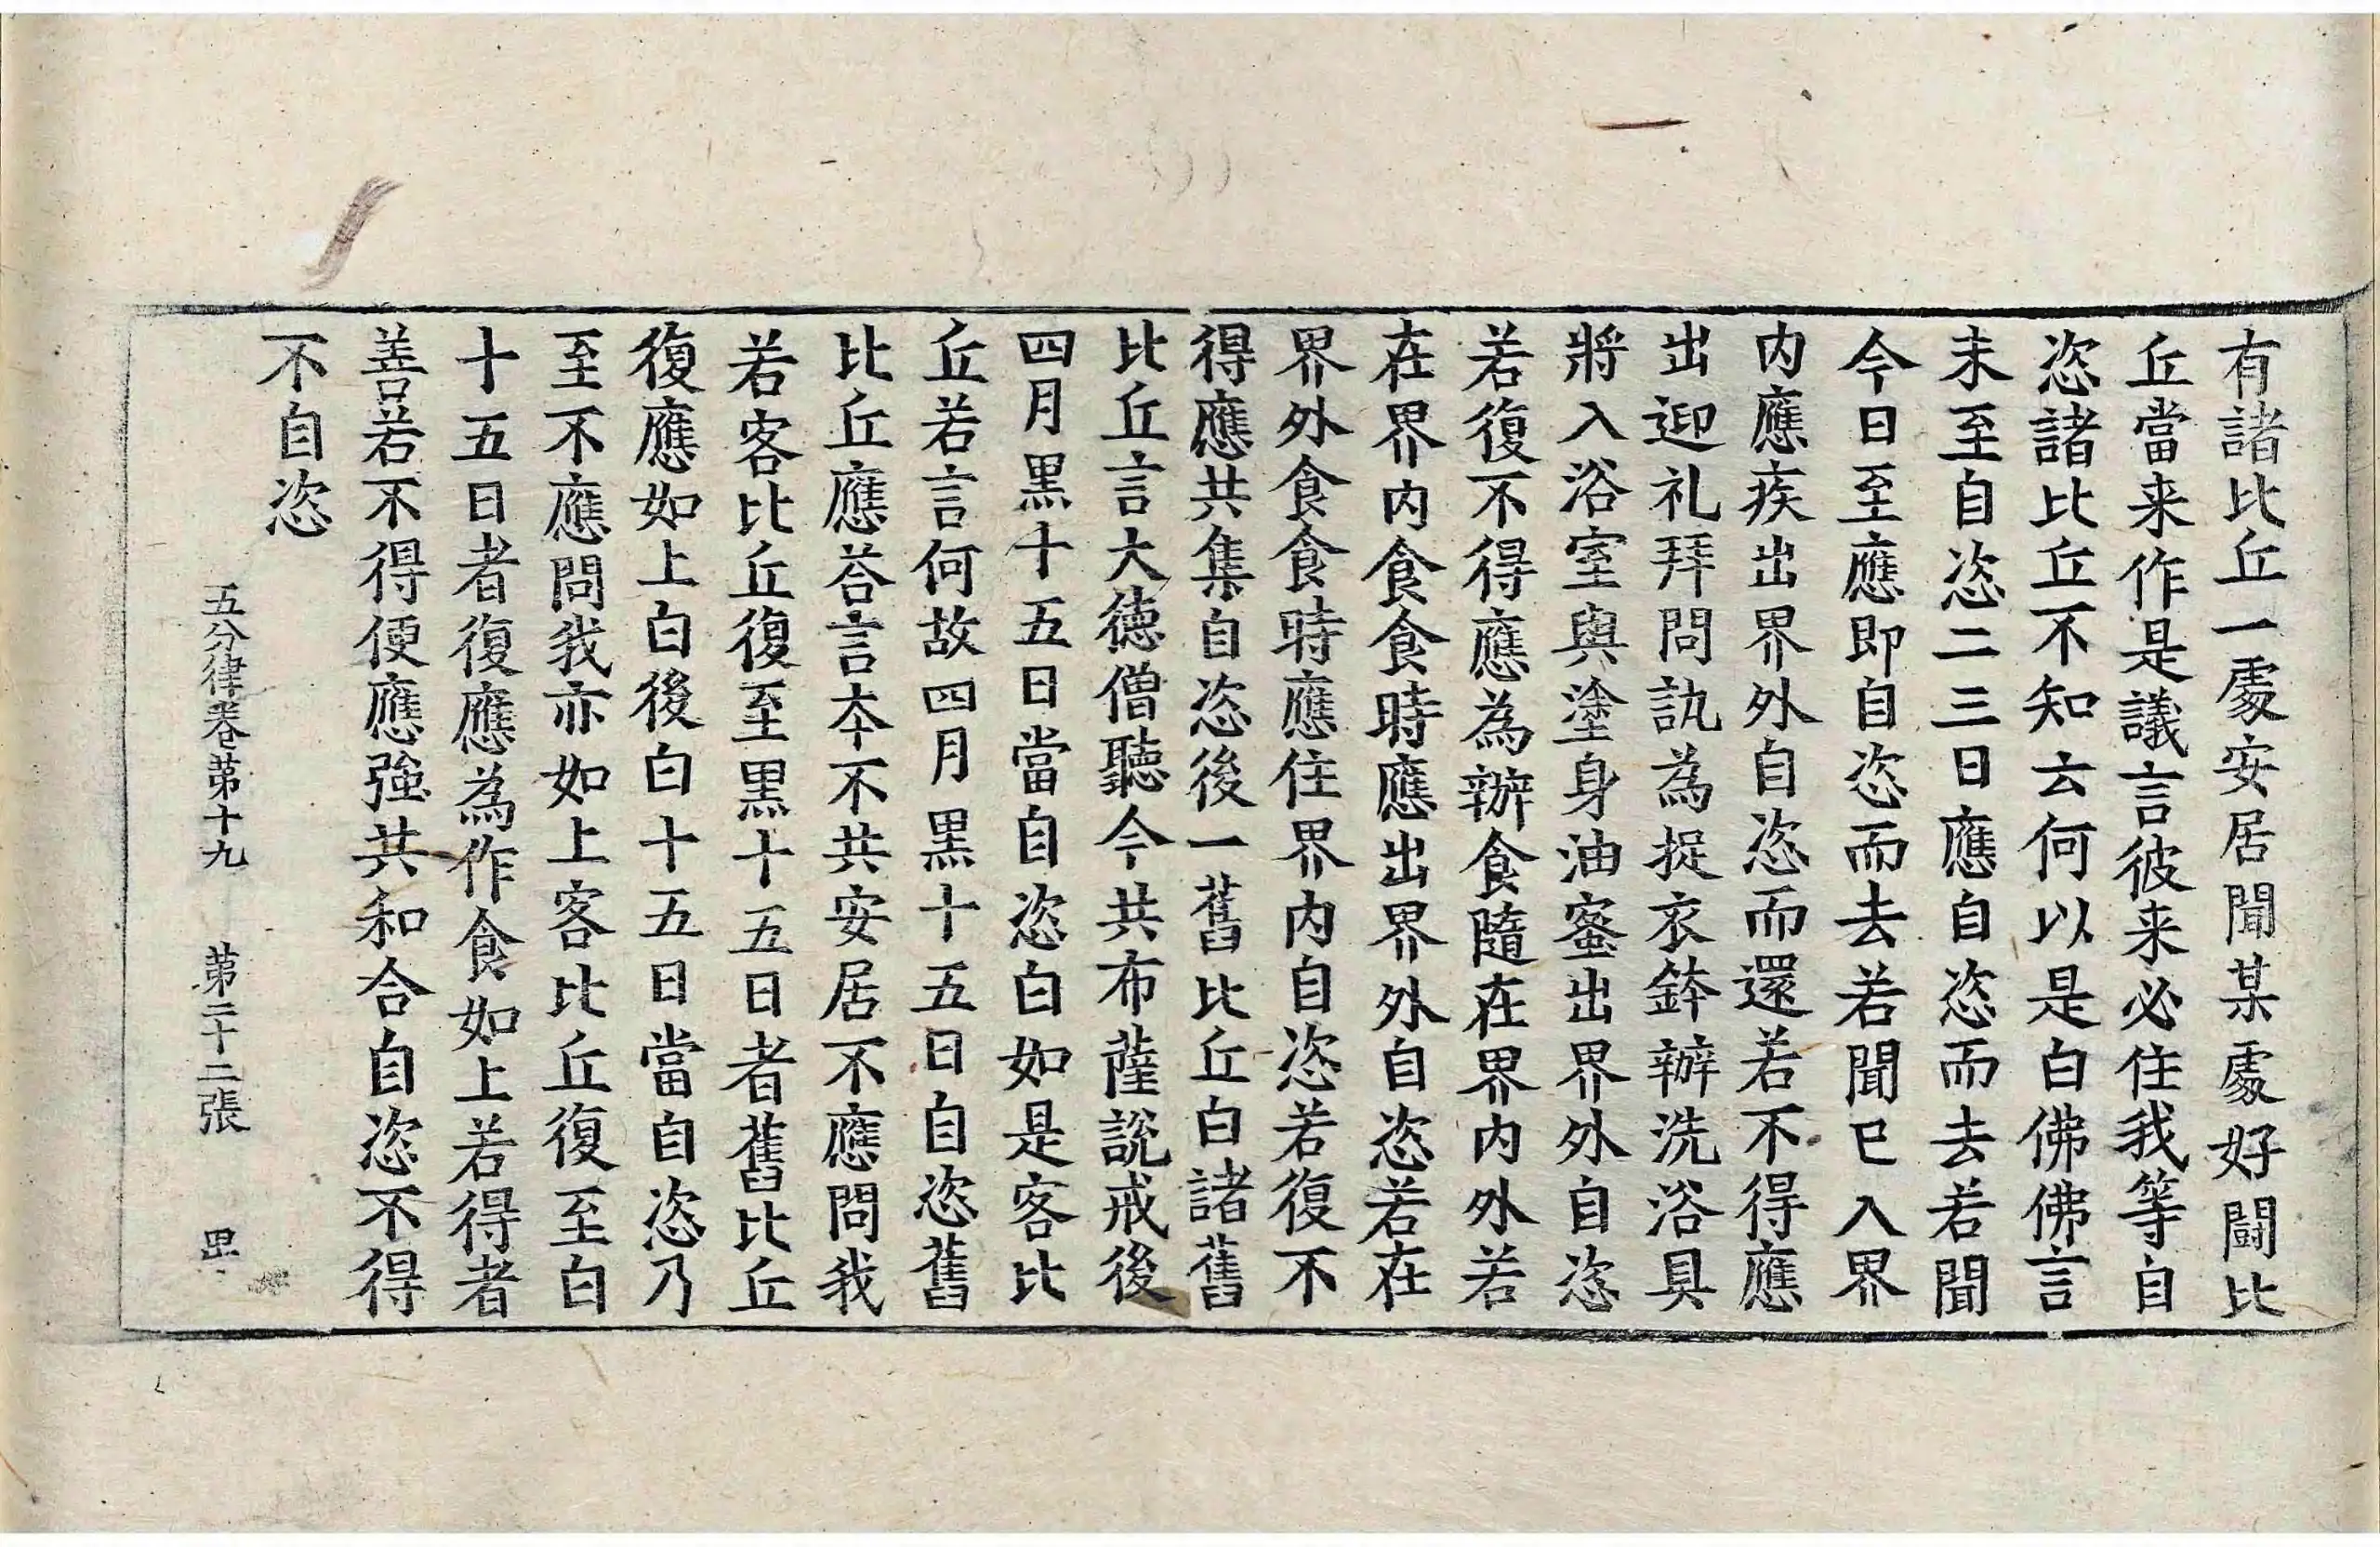 有諸比丘一䖏安居聞某䖏好闘比
丘當来作是議言彼来必住我等自
恣諸比丘不知云何以是白佛佛言
未至自恣二三日應自恣而去若聞
今日至應即自恣而去若聞已入界
内應疾出界外自恣而還若不得應
出迎礼拜問訊為捉衣鉢辦洗浴具
將入浴室與塗身油蜜出界外自恣
若復不得應為辦食隨在界内外若
在界内食食時應出界外自恣若在
界外食食時應住界内自恣若復不
得應共集自恣後一舊比丘白諸舊
比丘言大德僧聽今共布薩説戒後
四月黒十五日當自恣白如是客比
丘若言何故四月黒十五日自恣舊
比丘應荅言夲不共安居不應問我
若客比丘復至黒十五日者舊比丘
復應如上白後白十五日當自恣乃
至不應問我亦如上客比丘復至白
十五日者復應為作食如上若得者
善若不得便應強共和合自恣不得
不自恣
五分律卷苐十九　苐二十二張